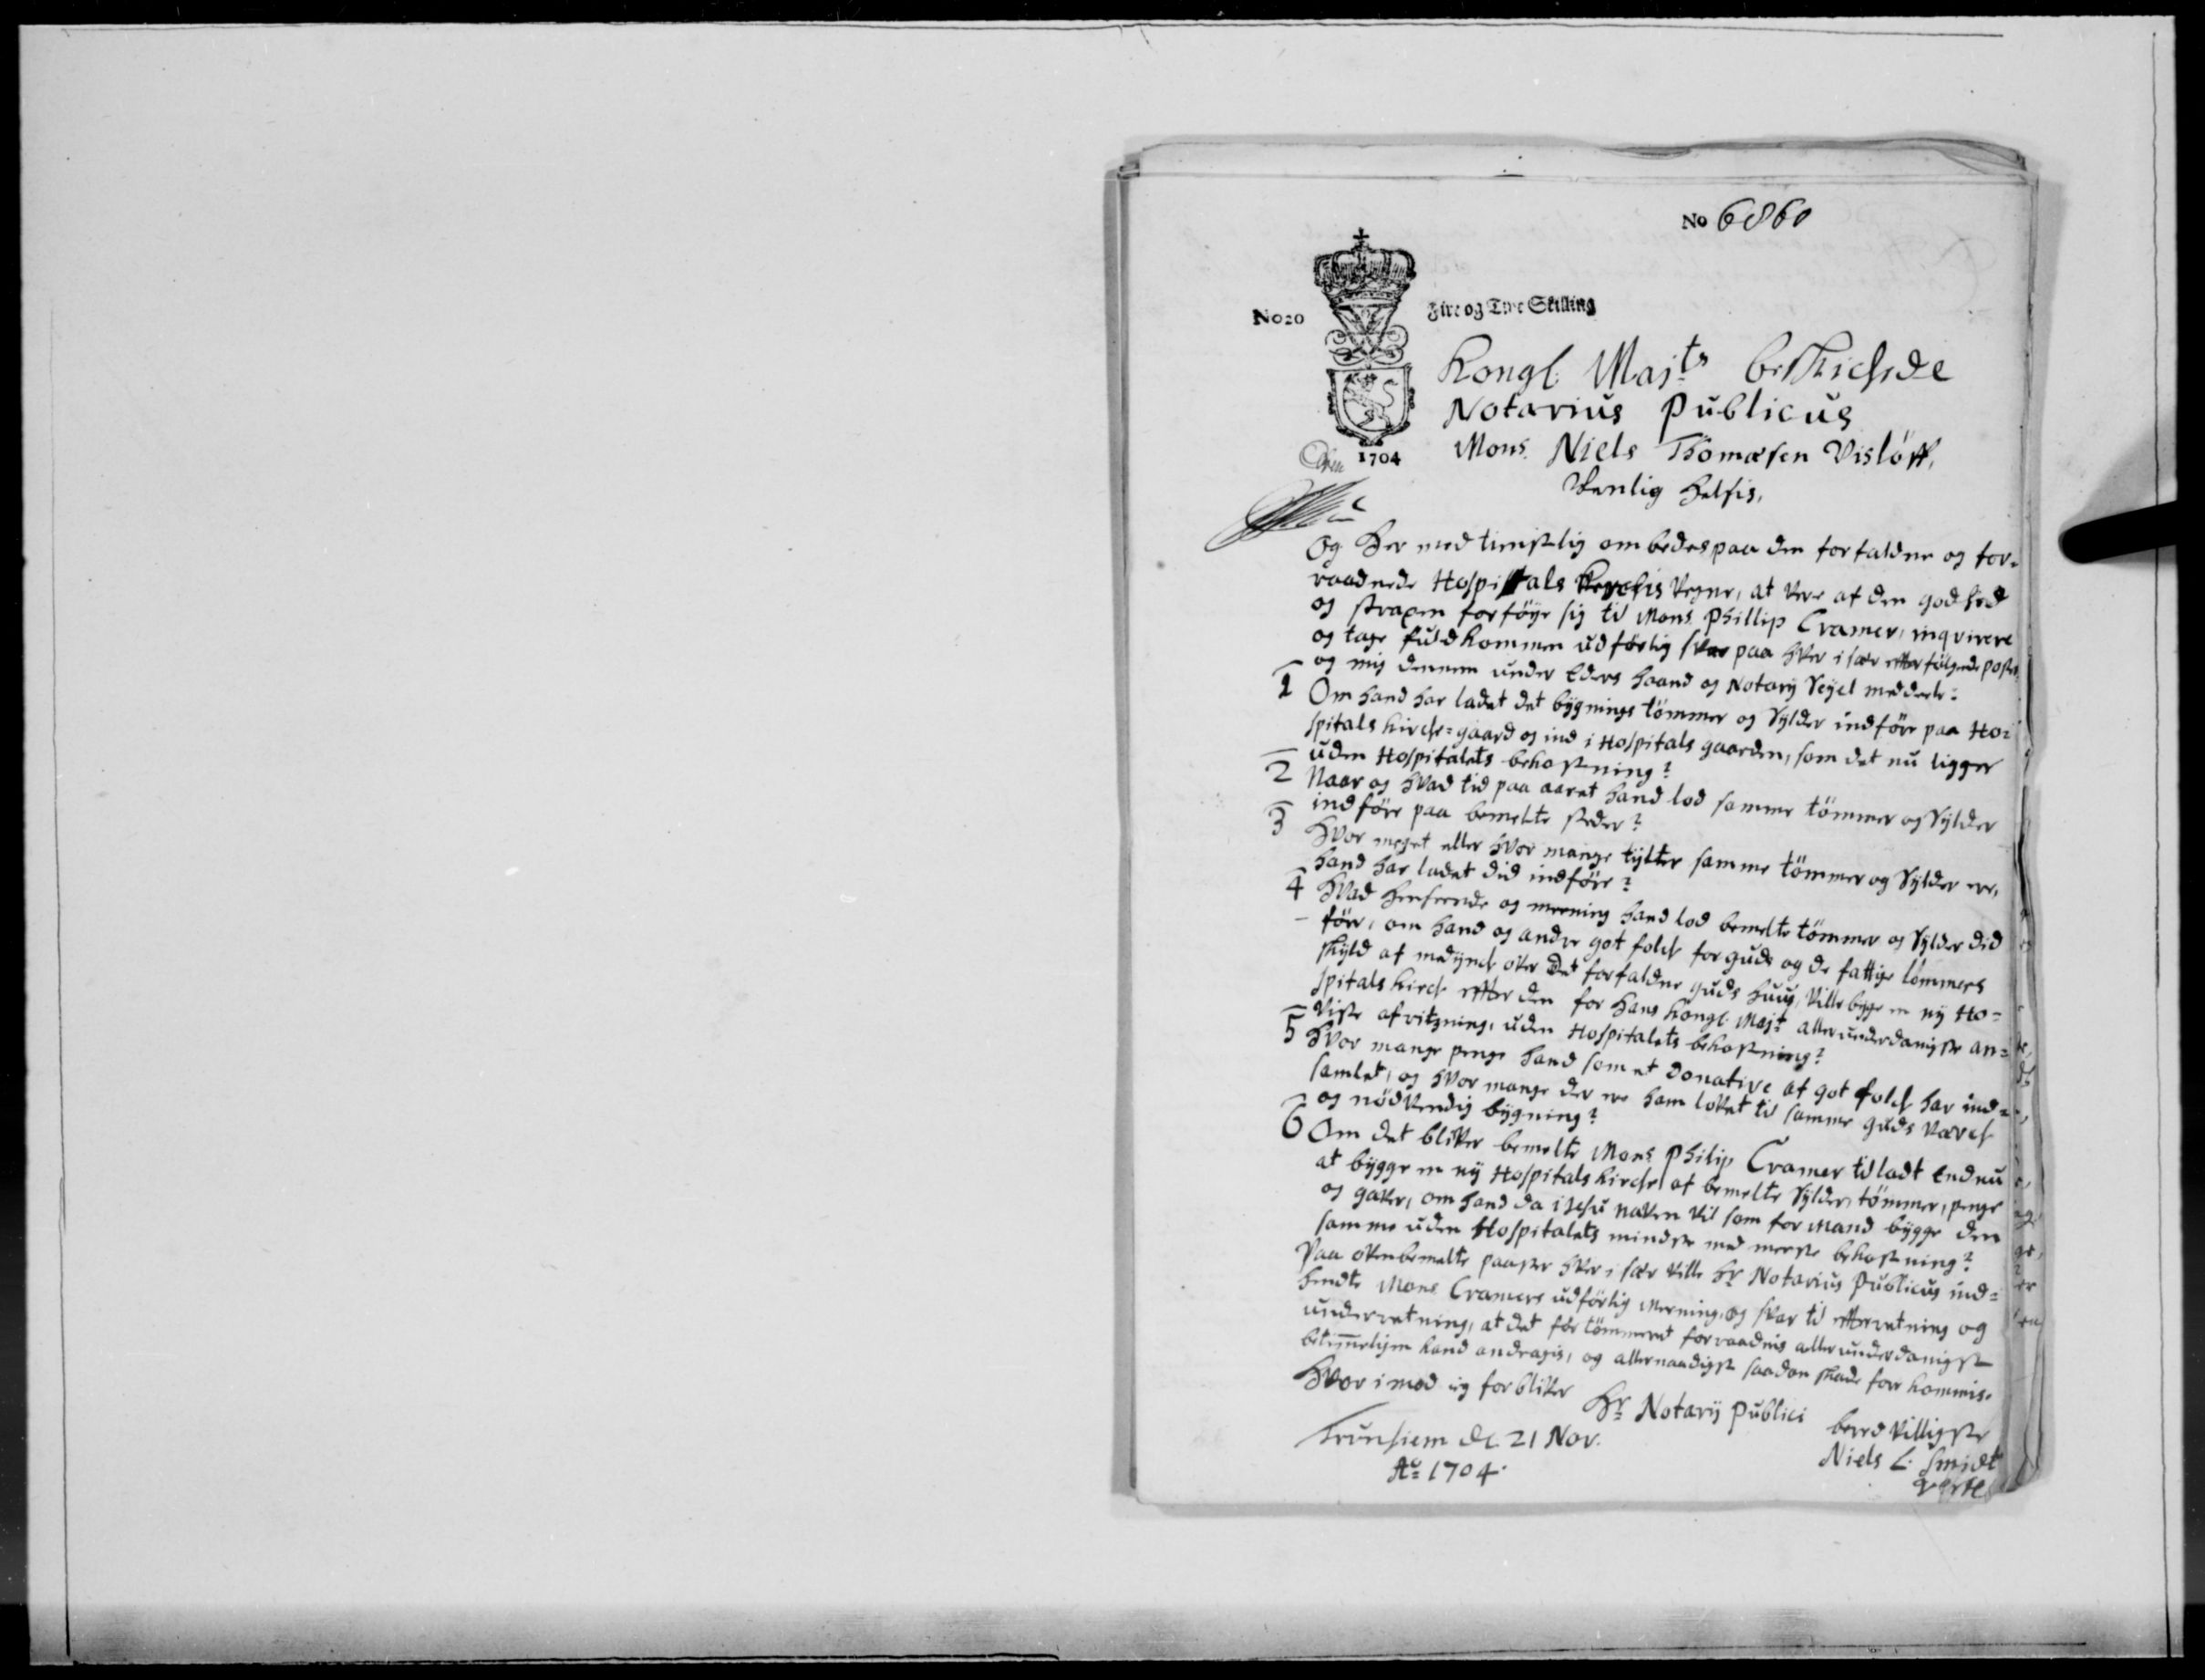 No 6860
No 20
Fire og Tive Skilling
1704
Kongl. Maj:ts beskichede
Notarius Publicus
Mons. Niels Thomæsen Vislöff,
Venlig helsis,
Og her med tienstlig ombedes paa den forfaldne og for-
raadnede Hospitals Kirchis vegne, at vere af den godhed
og straxen forföye sig til Mons. Phillip Cramer, inqvirere
og tage fuldkommen udförlig svar paa hver i sær efterfölgende poster
og mig dennem under Eders haand og Notarij Seyel meddeele:
1 Om hand har ladet det bygnings tömmer og Sylder indföre paa Ho-
spitals kirche-gaard og ind i Hospitals gaarden, som det nu ligger
uden Hospitalets bekostning?
2 Naar og hvad tid paa aaret hand lod samme tömmer og Sylder
indföre paa bemelte steder?
3 Hvor meget eller hvor mange tylter samme tömmer og Sylder ere,
hand har ladet did indföre?
4 Hvad henseende og meening hand lod bemelte tömmer og Sylder did
före, om hand og andre got folch for guds og de fattige lemmers
skyld af medynch over det forfaldne guds huus, ville bygge en ny Ho-
spitals kirch efter den for hans Kongl. Maj:t allerunderdanigste an-
viste afritzning, uden Hospitalets bekostning?
5 Hvor mange penge hand som et Donative af got folch har ind-
samlet, og hvor mange der ere ham lovet til samme guds værch
og nödvendig bygning?
6 Om det bliver bemelte Mons. Philip Cramer tilladt endnu
at bygge en ny Hospitals kirche af bemelte Sylder, tömmer, penge
og gaver, om hand da i Jesu navn vil som for mand bygge den
samme uden Hospitalets mindste med meeste bekostning?
Paa ovenbemelte paaster hver i sær ville Hr Notarius Publicus ind-
hendte Mons. Cramers udförlig meening, og svar til efterretning og
underretning, at det för tömmeret forraadnis allerunderdanigst
betimmeligen kand andragis, og allernaadigst saadan skade forekommis.
Hvorimod ieg forbliver
Hr Notarij Publici
beredvilligste
Trunhiem de 21 Nov.
Niels L. Smidt
Ao 1704.